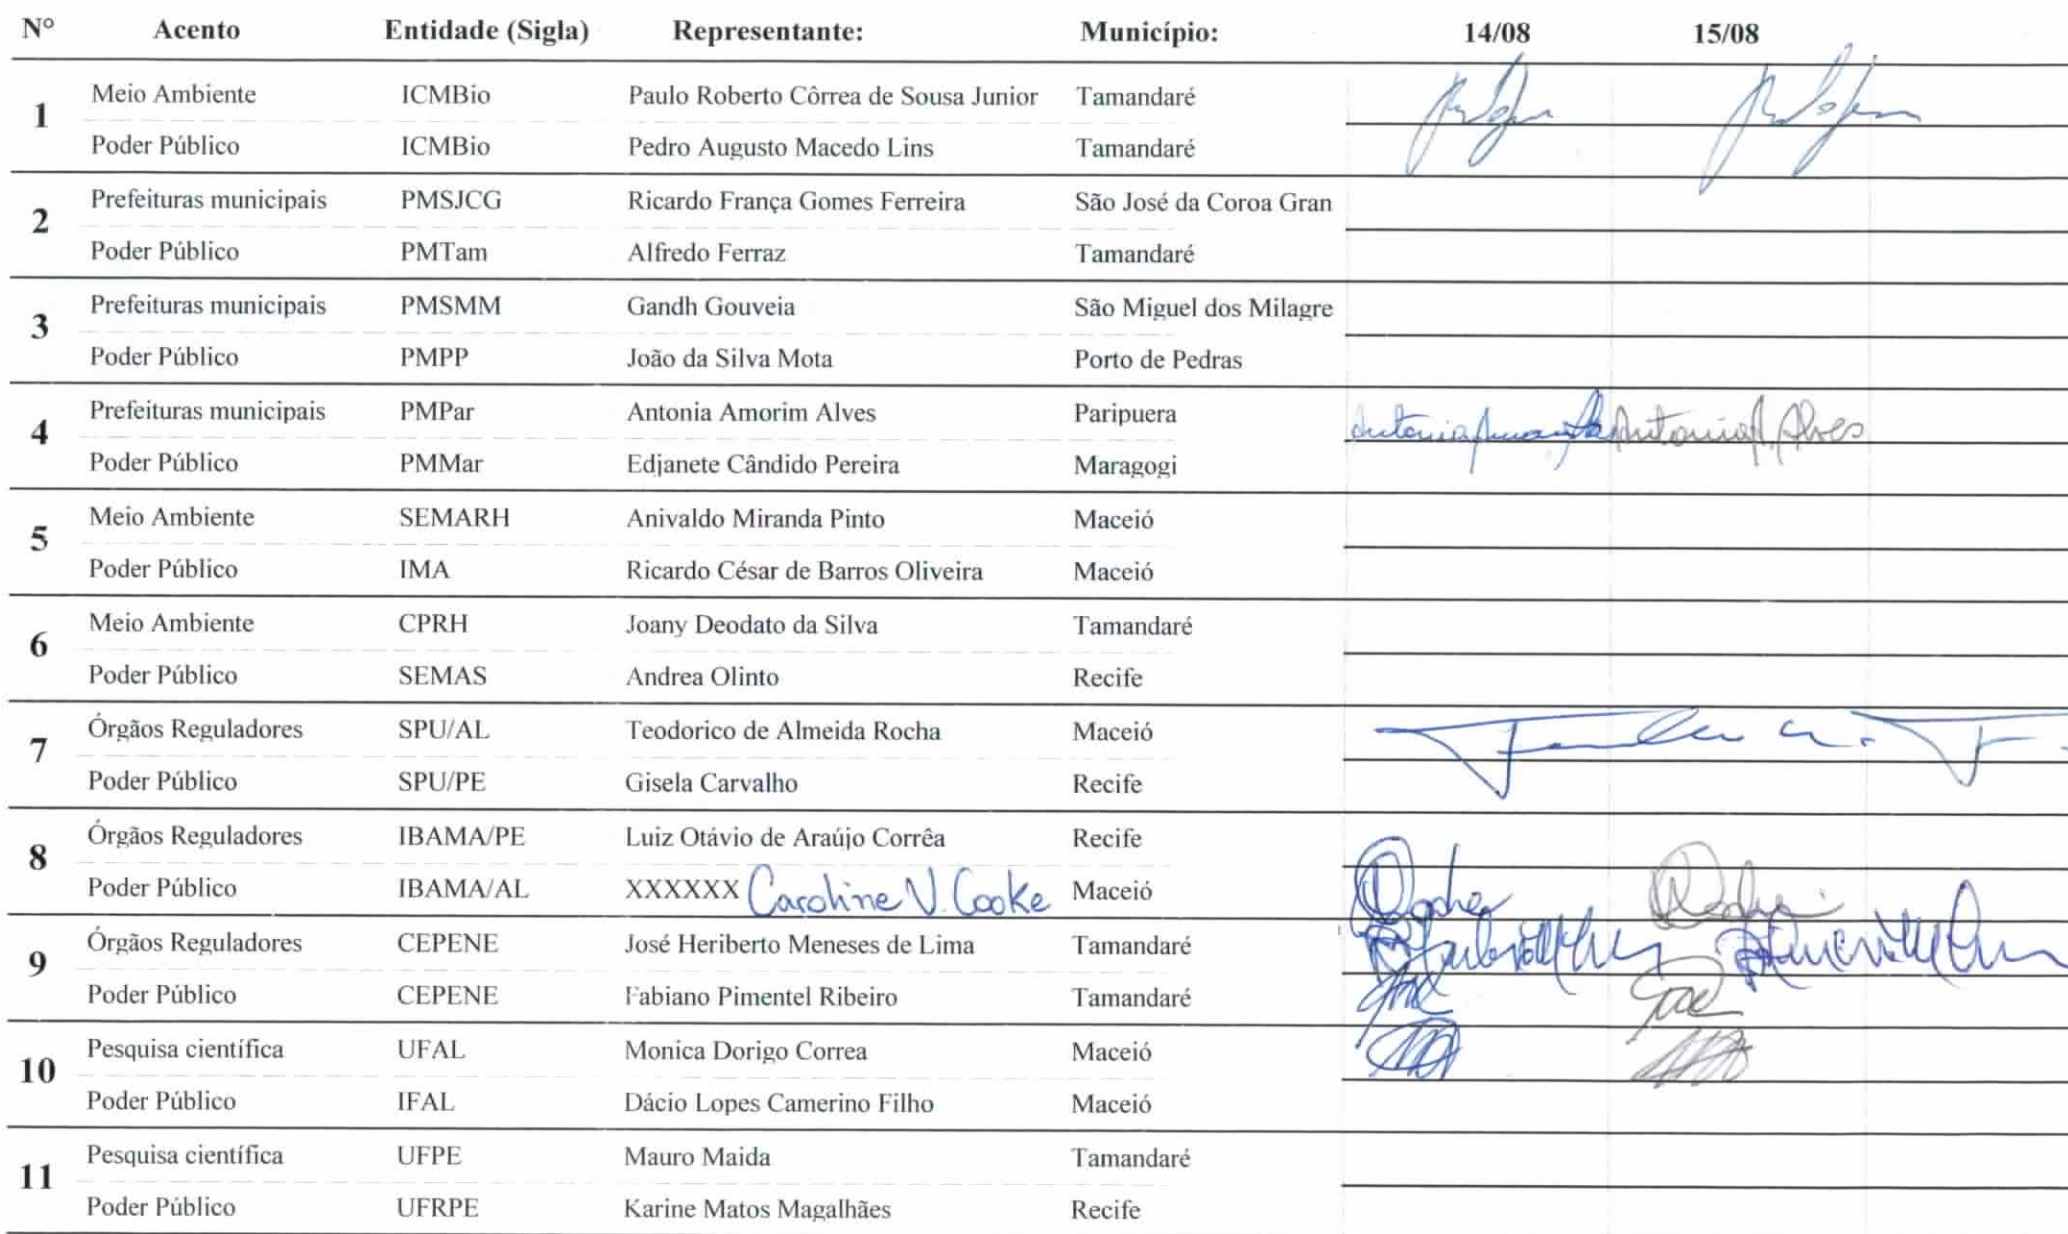 Nº Acento Entidade (Sigla) Representante: Município: 14/08 15/08
1
Meio Ambiente ICMBio Paulo Roberto Côrrea de Sousa Junior Tamandaré
Poder Público ICMBio Pedro Augusto Macedo Lins Tamandaré
2
Prefeituras municipais PMSJCG Ricardo França Gomes Ferreira São José da Coroa Gran
Poder Público PMTam Alfredo Ferraz Tamandaré
3
Prefeituras municipais PMSMM Gandh Gouveia São Miguel dos Milagre
Poder Público PMPP João da Silva Mota Porto de Pedras
4
Prefeituras municipais PMPar Antonia Amorim Alves Paripuera Antonia A. Alves
Poder Público PMMar Edjanete Cândido Pereira Maragogi
5
Meio Ambiente SEMARH Anivaldo Miranda Pinto Maceió
Poder Público IMA Ricardo César de Barros Oliveira Maceió
6
Meio Ambiente CPRH Joany Deodato da Silva Tamandaré
Poder Público SEMAS Andrea Olinto Recife
7
Órgãos Reguladores SPU/AL Teodorico de Almeida Rocha Maceió
Poder Público SPU/PE Gisela Carvalho Recife
8
Órgãos Reguladores IBAMA/PE Luiz Otávio de Araújo Corrêa Recife
Poder Público IBAMA/AL XXXXXX Caroline V. Cooke Maceió
9
Órgãos Reguladores CEPENE José Heriberto Meneses de Lima Tamandaré
Poder Público CEPENE Fabiano Pimentel Ribeiro Tamandaré
10
Pesquisa científica UFAL Monica Dorigo Correa Maceió
Poder Público IFAL Dácio Lopes Camerino Filho Maceió
11
Pesquisa científica UFPE Mauro Maida Tamandaré
Poder Público UFRPE Karine Matos Magalhães Recife